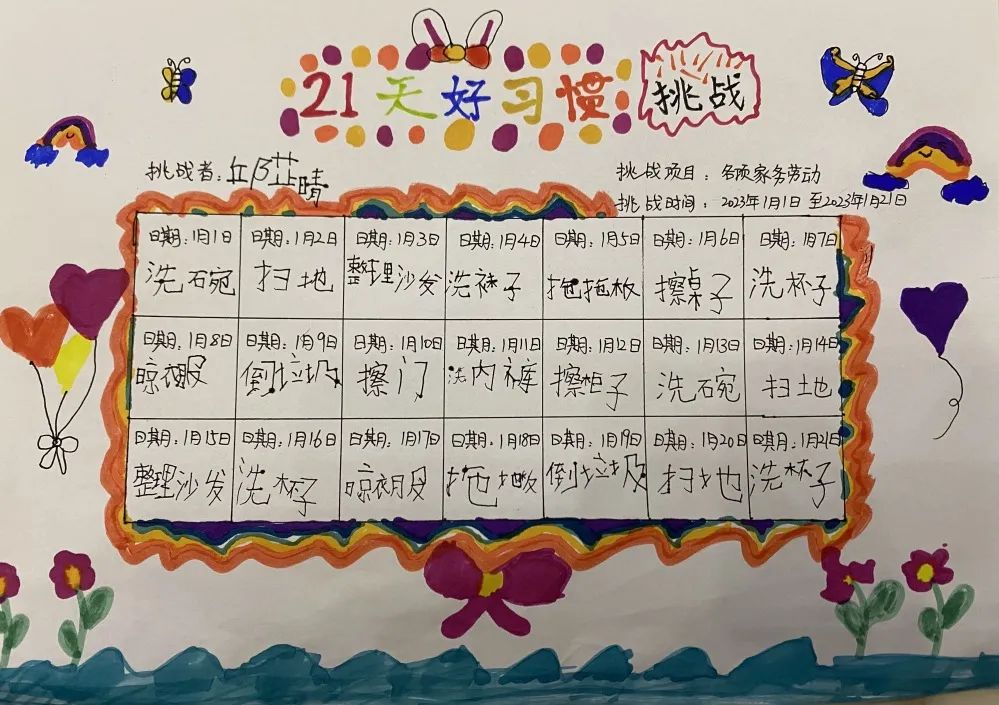 21天好习惯 挑战
挑战者：邱芷晴 挑战项目：各项家务劳动
挑战时间：2023年1月1日至2023年1月21日
日期：1月1日 日期：1月2日 日期：1月3日 日期：1月4日 日期：1月5日 日期：1月6日 日期：1月7日
洗碗 扫地 整理沙发 洗袜子 拖拖板 擦桌子 洗杯子
日期：1月8日 日期：1月9日 日期：1月10日 日期：1月11日 日期：1月12日 日期：1月13日 日期：1月14日
晾衣服 倒垃圾 擦门 洗内裤 擦柜子 洗碗 扫地
日期：1月15日 日期：1月16日 日期：1月17日 日期：1月18日 日期：1月19日 日期：1月20日 日期：1月21日
整理沙发 洗杯子 晾衣服 拖地板 倒垃圾 扫地 洗杯子